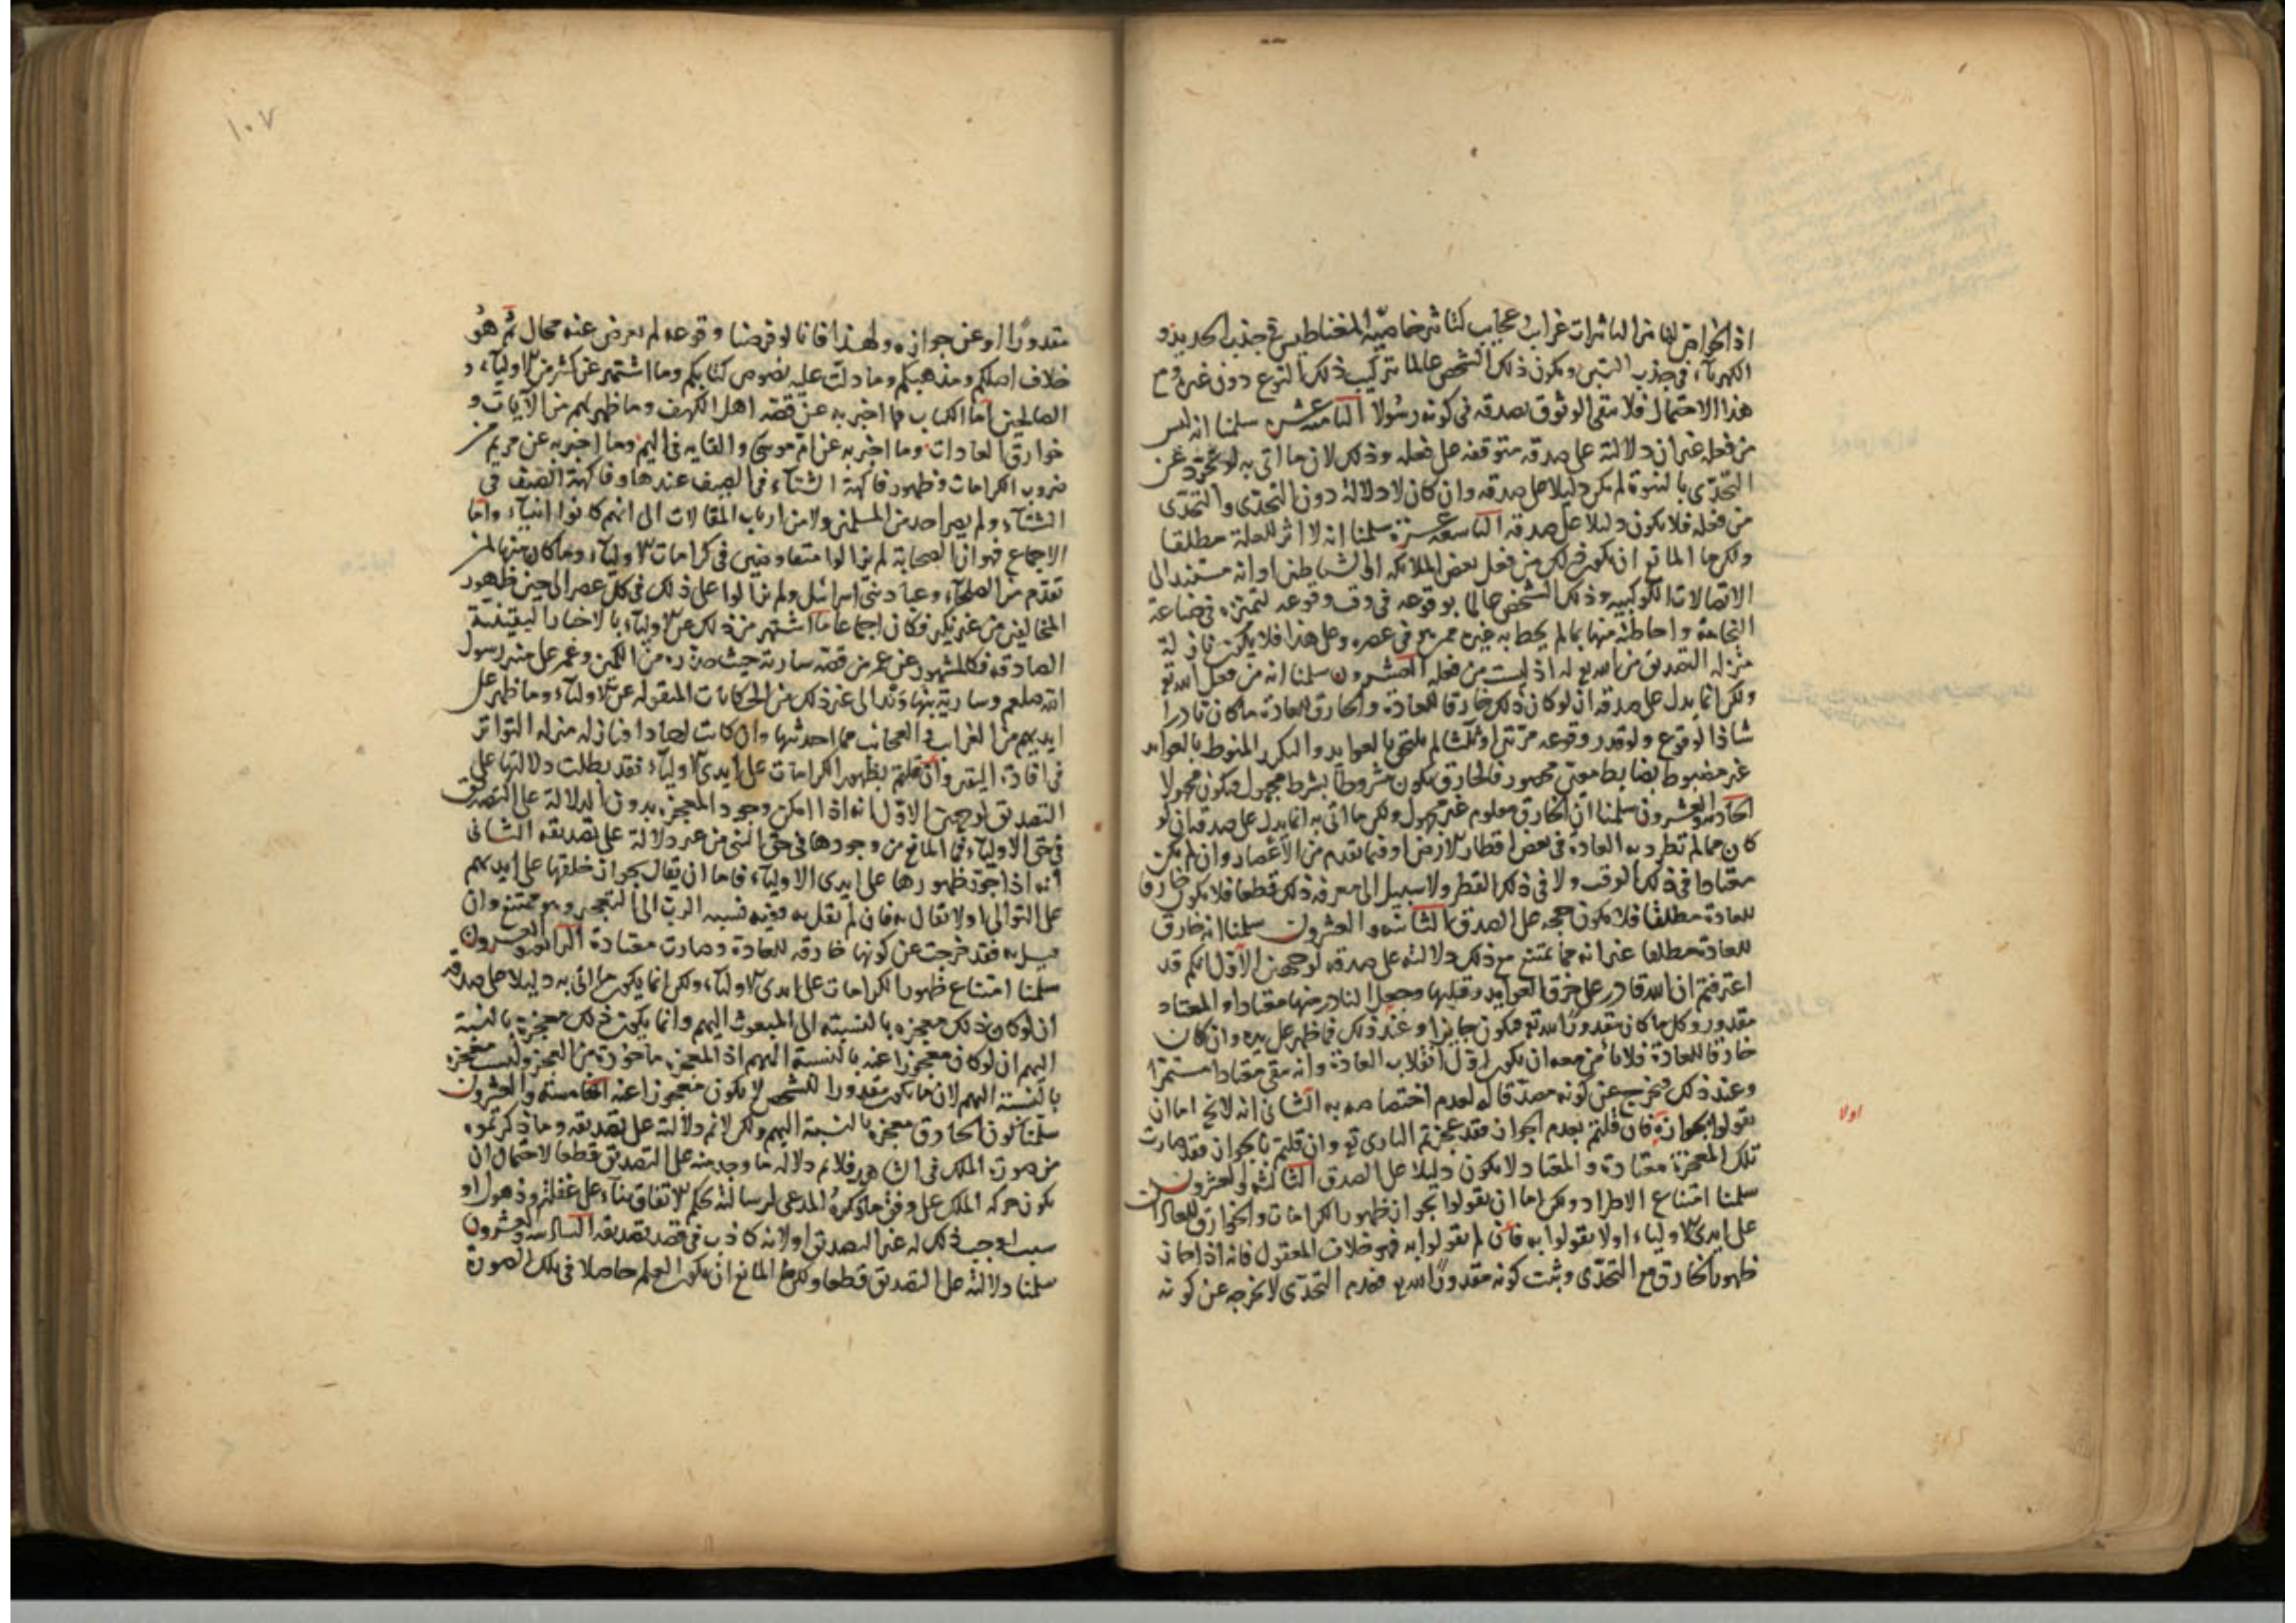 اذ الخواص لها من التاثيرات غرايب وعجايب كتاثير خاصية المغناطيس في جذب الحديد و
الكهرباء في جذب التبن ويكون ذلك الشخص عالما بتركيب ذلك النوع دون غيره ومع
هذا الاحتمال فلا يبقى الوثوق بصدقه في كونه رسولا الثامنة عشر سلمنا انه ليس
من فعله غير ان دلالته على صدقه متوقفة على فعله وذلك لان ما اتى به لو تجرد عن
التحدى بالنبوة لم يكن دليلا على صدقه وان كان لا دلالة دون التحدى والتحدى
من فعله فلا يكون دليلا على صدقه التاسعة عشرة سلمنا انه لا اثر لفعله مطلقا
ولكن ما المانع ان يكون ذلك من فعل بعض الملائكة او الشياطين او انه مستند الى
الاتصالات الكوكبية وذلك الشخص عالما بوقوعه في وقت وقوعه لتميزه في صناعة
النجامة واحاطته منها بما لم يحط به غيره ممن هو في عصره وعلى هذا فلا يكون نازلة
منزلة التصديق من الله تع له اذ ليست من فعله العشرون سلمنا انه من فعل الله تع
ولكن انما يدل على صدقه ان لو كان ذلك خارقا للعادة والخارق للعادة ما كان نادرا
شاذ الوقوع ولو قدر وقوعه مرتين او ثلثا لم يلتحق بالعوايد والتكرر المنوط بالعوايد
غير مضبوط بضابط معين محصور فالخارق يكون مشروطا بشرط مجهول فيكون مجهولا
الحادية والعشرون سلمنا ان الخارق معلوم غير مجهول ولكن ما اتى به انما يدل على صدقه ان لو
كان مما لم تطرد به العادة في بعض اقطار الارض او فيما تقدم من الاعصار وان لم يكن
معتادا في ذلك الوقت ولا في ذلك القطر ولا سبيل الى معرفة ذلك قطعا فلا يكون خارقا
للعادة مطلقا فلا يكون حجه على الصدق الثانية والعشرون سلمنا انه خارق
للعادة مطلقا غير انه مما يمتنع مع ذلك دلالته على صدقه لوجهين الاول انكم قد
اعترفتم ان الله قادر على خرق العوايد وقلبها وجعل النادر منها معتادا والمعتاد
مقدور وكل ما كان مقدورا لله تع فيكون جايزا وعند ذلك فما ظهر على يده وان كان
خارقا للعادة فلا نامن معه ان يكون اول انقلاب العادة وانه يبقى معتادا مستمرا
وعند ذلك فيخرج عن كونه مصدقا له لعدم اختصاصه به الثاني انه لا يخ اما ان
تقولوا بجوازه فان قلتم بعدم الجواز فقد عجزتم البارى تع وان قلتم بالجواز فقد صارت
تلك المعجزة معتادة والمعتاد لا يكون دليلا على الصدق الثالثة والعشرون
سلمنا امتناع الاطراد ولكن اما ان تقولوا بجواز ظهور الكرامات والخوارق للعادات
على ايدى الاولياء او لا تقولوا به فان لم تقولوا به فهو خلاف المعقول فانه اذا جاز
ظهور الخارق مع التحدى وثبت كونه مقدورا لله تع فعدم التحدى لا يخرجه عن كونه
اولا
١٠٧
مقدورا او عن جوازه ولهذا فانا لو فرضنا وقوعه لم يعرض عنه محال ثم هو
خلاف اصلكم ومذهبكم وما دلت عليه نصوص كتابكم وما اشتهر عن كثير من الاولياء و
الصالحين اما الكتاب فما اخبر به عن قصة اهل الكهف وما ظهر لهم من الآيات و
خوارق العادات وما اخبر به عن ام موسى والقايه في اليم وما اخبر به عن مريم من
ضروب الكرامات وظهور فاكهة الشتاء في الصيف عندها وفاكهة الصيف في
الشتاء ولم يصر احد من المسلمين ولا من ارباب المقالات الى انهم كانوا انبياء واما
الاجماع فهو ان الصحابة لم يزالوا متفاوضين في كرامات الاولياء وما كان منها لمن
تقدم من الصلحاء وعباد بني اسرائيل ولم يزالوا على ذلك في كل عصر الى حين ظهور
المخالفين من غير نكير فكان اجماعا ما اشتهر من ذلك عن الاولياء بالاخبار اليقينية
الصادقة فكالمشهور عن عمر من قصة سارية حيث حذره من الكمين وعمر على منبر رسول
الله صلعم وسارية بنهاوند الى غير ذلك من الحكايات المنقولة عن الاولياء وما ظهر على
ايديهم من الغرايب والعجائب مما احدثها وان كانت احادا فنازلة منزلة التواتر
في افادة اليقين وان قلتم بظهور الكرامات على ايدى الاولياء فقد بطلت دلالتها على
التصديق لوجهين الاول انه اذا امكن وجود المعجز بدون الدلالة على التصديق
في حق الاولياء فما المانع من وجودها في حق النبي من غير دلالة على تصديقه الثاني
انه اذا جوز ظهورها على ايدى الاولياء فاما ان يقال بجواز خلقها على ايديهم
على التوالى او لا يقال به فان لم يقل به ففيه نسبة الرب الى التعجيز وهو ممتنع وان
قيل به فقد خرجت عن كونها خارقة للعادة وصارت معتادة الرابعة والعشرون
سلمنا امتناع ظهور الكرامات على ايدى الاولياء ولكن انما يكون ما اتى به دليلا على صدقه
ان لو كان ذلك معجزه بالنسبة الى المبعوث اليهم وانما يكون ذلك معجزة بالنسبة
اليهم ان لو كان معجوزا عنه بالنسبة اليهم اذ المعجزه ماخوذة من العجز وليست معجزه
بالنسبة اليهم لان ما يكون مقدورا للشخص لا يكون معجوزا عنه الخامسة والعشرون
سلمنا كون الخارق معجزه بالنسبة اليهم ولكن لا نم دلالته على تصديقه وما ذكرتموه
من صورة الملك في الشاهد فلا نم دلالة ما وجد منه على التصديق قطعا لاحتمال ان
يكون حركة الملك على وفق ما ذكره المدعى لرسالته بحكم الاتفاق بناء على غفلة وذهول او
سبب اوجب ذلك له غير التصديق او لانه كاذب في قصد تصديقه السادسة والعشرون
سلمنا دلالته على التصديق قطعا ولكن ما المانع ان يكون العلم حاصلا في تلك الصورة